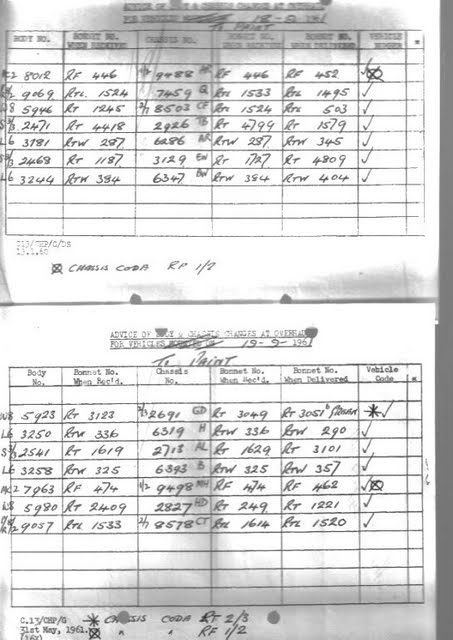 ADVICE OF BODY & CHASSIS CHANGES AT OVERHAUL
FOR VEHICLES 18-9-1961
To PAINT
BODY NO. BONNET NO. WHEN RECEIVED CHASSIS NO. BONNET NO. WHEN RECEIVED BONNET NO. WHEN DELIVERED VEHICLE *
8012 RF 446 9488 RF 446 RF 452 ✓
9069 RTL 1524 7459 Q RTL 1533 RTL 1495 ✓
W8 5946 RT 1245 2/1 8503 CF RTL 1524 RTL 503 ✓
2471 RT 4418 2926 TB RT 4799 RT 1579 ✓
L6 3181 RTW 287 6286 AR RTW 287 RTW 345 ✓
2468 RT 1187 3129 RT 1727 RT 4809 ✓
L6 3244 RTW 384 6347 RTW 384 RTW 404 ✓
C13/CHP/G/DS
CHASSIS CODA RF 1/2
ADVICE OF BODY & CHASSIS CHANGES AT OVERHAUL
FOR VEHICLES 19-9-1961
To PAINT
Body No. Bonnet No. When Rec'd. Chassis No. Bonnet No. When Rec'd. Bonnet No. When Delivered Vehicle Code *
W8 5923 RT 3123 2/3 2691 GD RT 3049 RT 3051 * ✓
L6 3250 RTW 336 6319 H RTW 336 RTW 290 ✓
2541 RT 1619 2713 AL RT 1629 RT 3101 ✓
L6 3258 RTW 325 6393 B RTW 325 RTW 357 ✓
7963 RF 474 1/2 9498 MH RF 474 RF 462 ✓
W8 5980 RT 2409 2827 HD RT 249 RT 1221 ✓
9057 RTL 1533 2/1 8578 CT RTL 1614 RTL 1520 ✓
C.13/CHP/G * CHASSIS CODA RT 2/3
31st May, 1961. " " RF 1/2
(169)